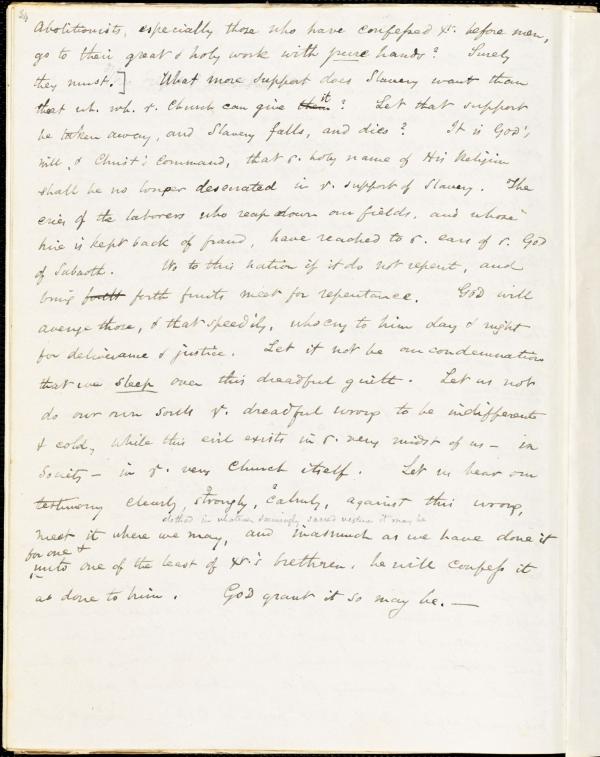 24
Abolitionists, especially those who have confessed Xt. before men,
go to their great & holy work with pure hands? Surely
they must.] What more support does Slavery want than
that wh. wh. ye. Church can give their it? Let that support
be taken away, and Slavery falls, and dies? It is God's
will, & Christ's command, that ye. holy name of His Religion
shall be no longer desecrated in ye. support of Slavery. The
cries of the laborers who reap down our fields, and whose
hire is kept back of fraud, have reached to ye. ears of ye. God
of Sabaoth. Wo to this nation if it do not repent, and
bring forth fruits meet for repentance. God will
avenge those, & that speedily, who cry to him day & night
for deliverance & justice. Let it not be our condemnation
that we sleep over this dreadful guilt. Let us not
do our own souls ye. dreadful wrong to be indifferent
& cold, while this evil exists in ye. very midst of us — in
Society — in ye. very Church itself. Let us bear our
testimony clearly, strongly, calmly, against this wrong,
clothed in whatever seemingly sacred vesture it may be
meet it where we may, and inasmuch as we have done it
for one &
unto one of the least of Xt.'s brethren, he will confess it
as done to him. God grant it so may be. —